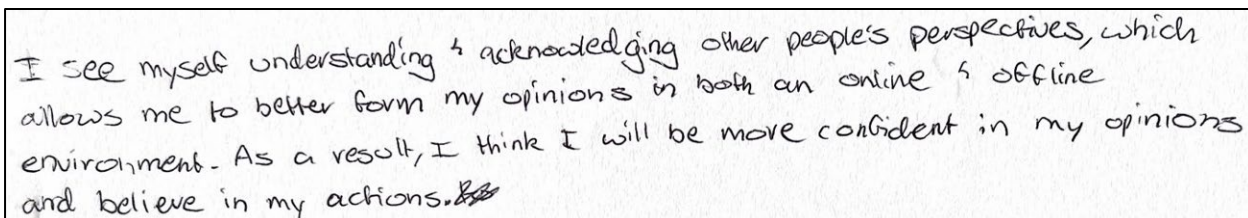 I see myself understanding & acknowledging other people's perspectives, which
allows me to better form my opinions in both an online & offline
environment. As a result, I think I will be more confident in my opinions
and believe in my actions.